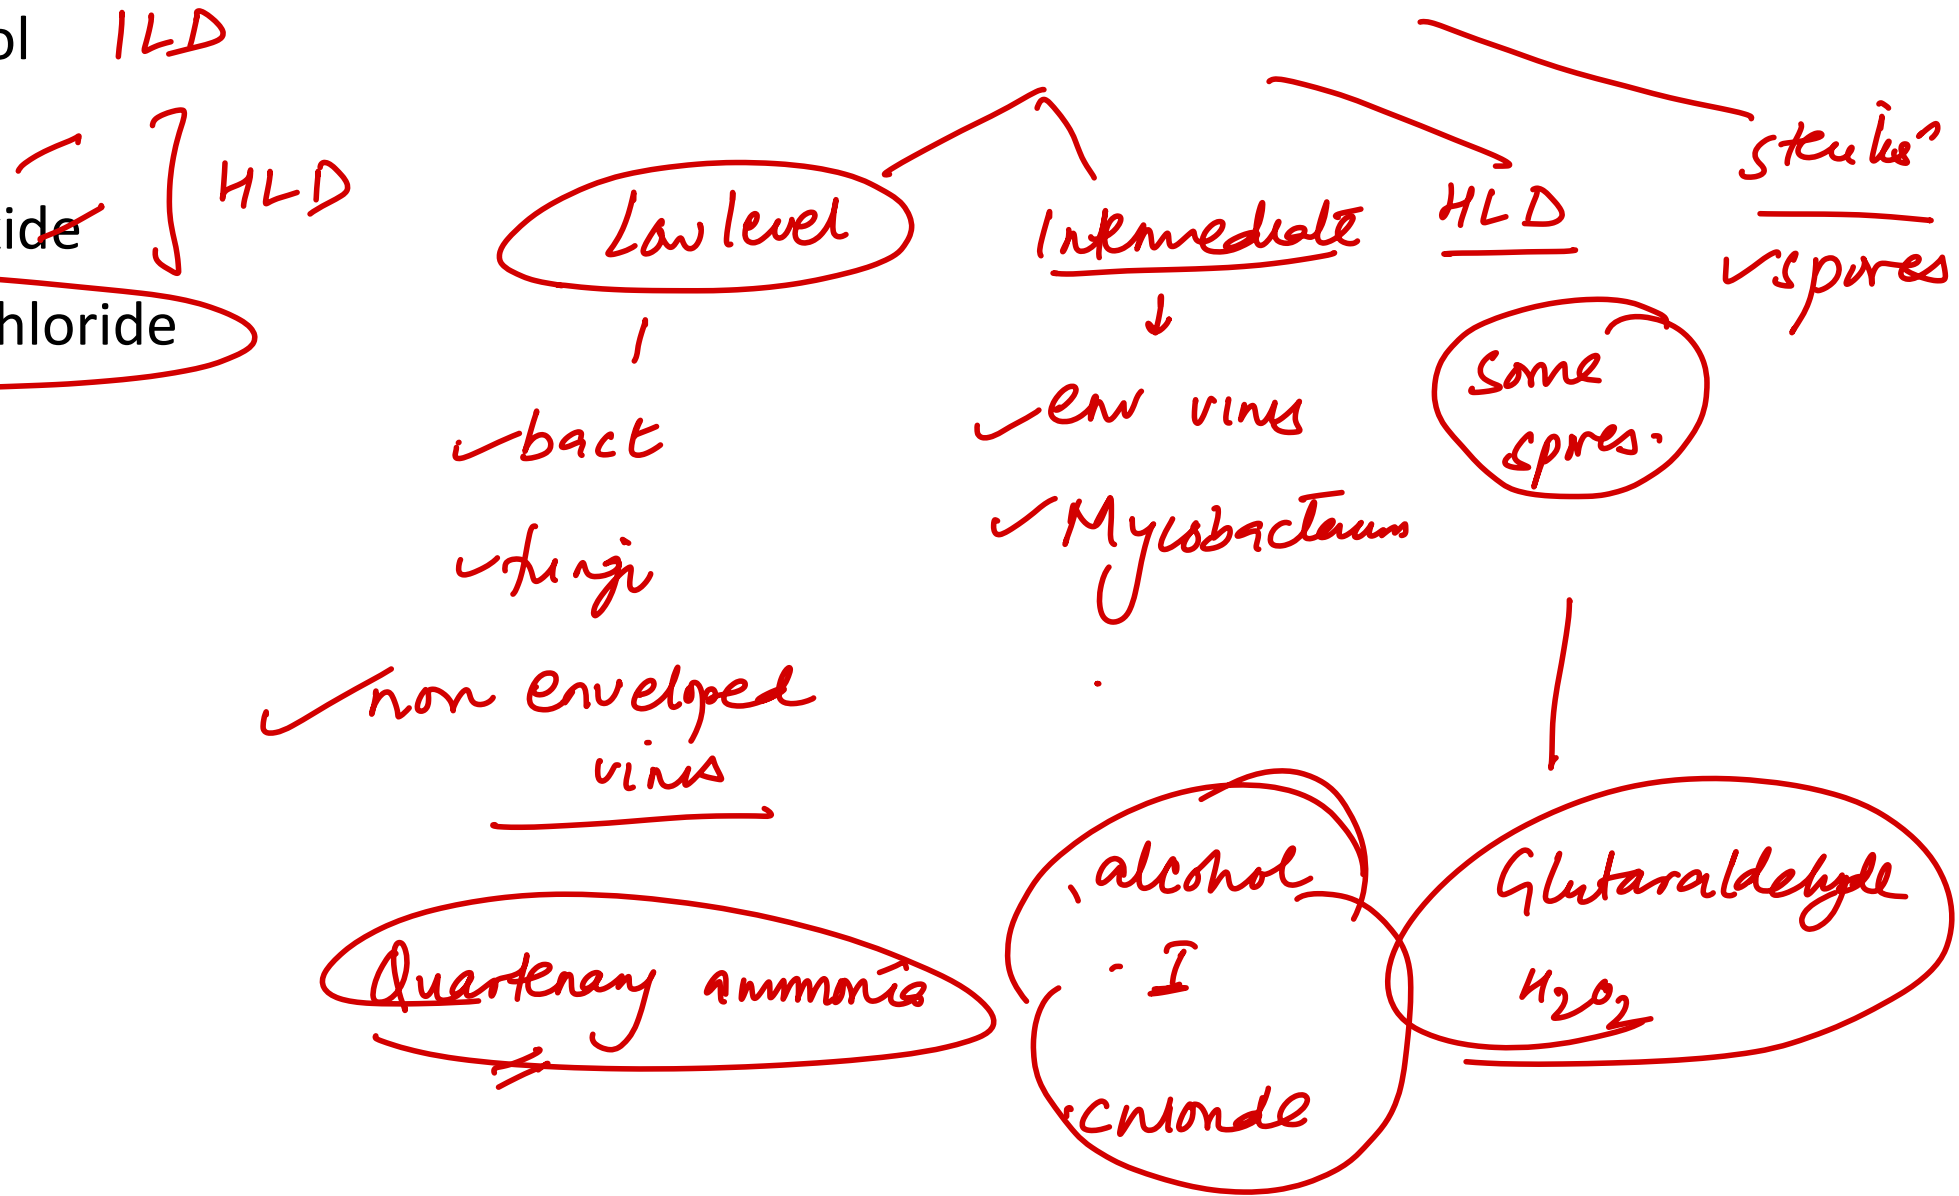 ol ILD
HLD
ide
hloride
Low level
bact
fungi
non enveloped
virus
Quartenary ammonia
Intermediate
env virus
Mycobacterium
alcohol
I
chloride
HLD
some
spores.
Glutaraldehyde
H2O2
sterilis
spores